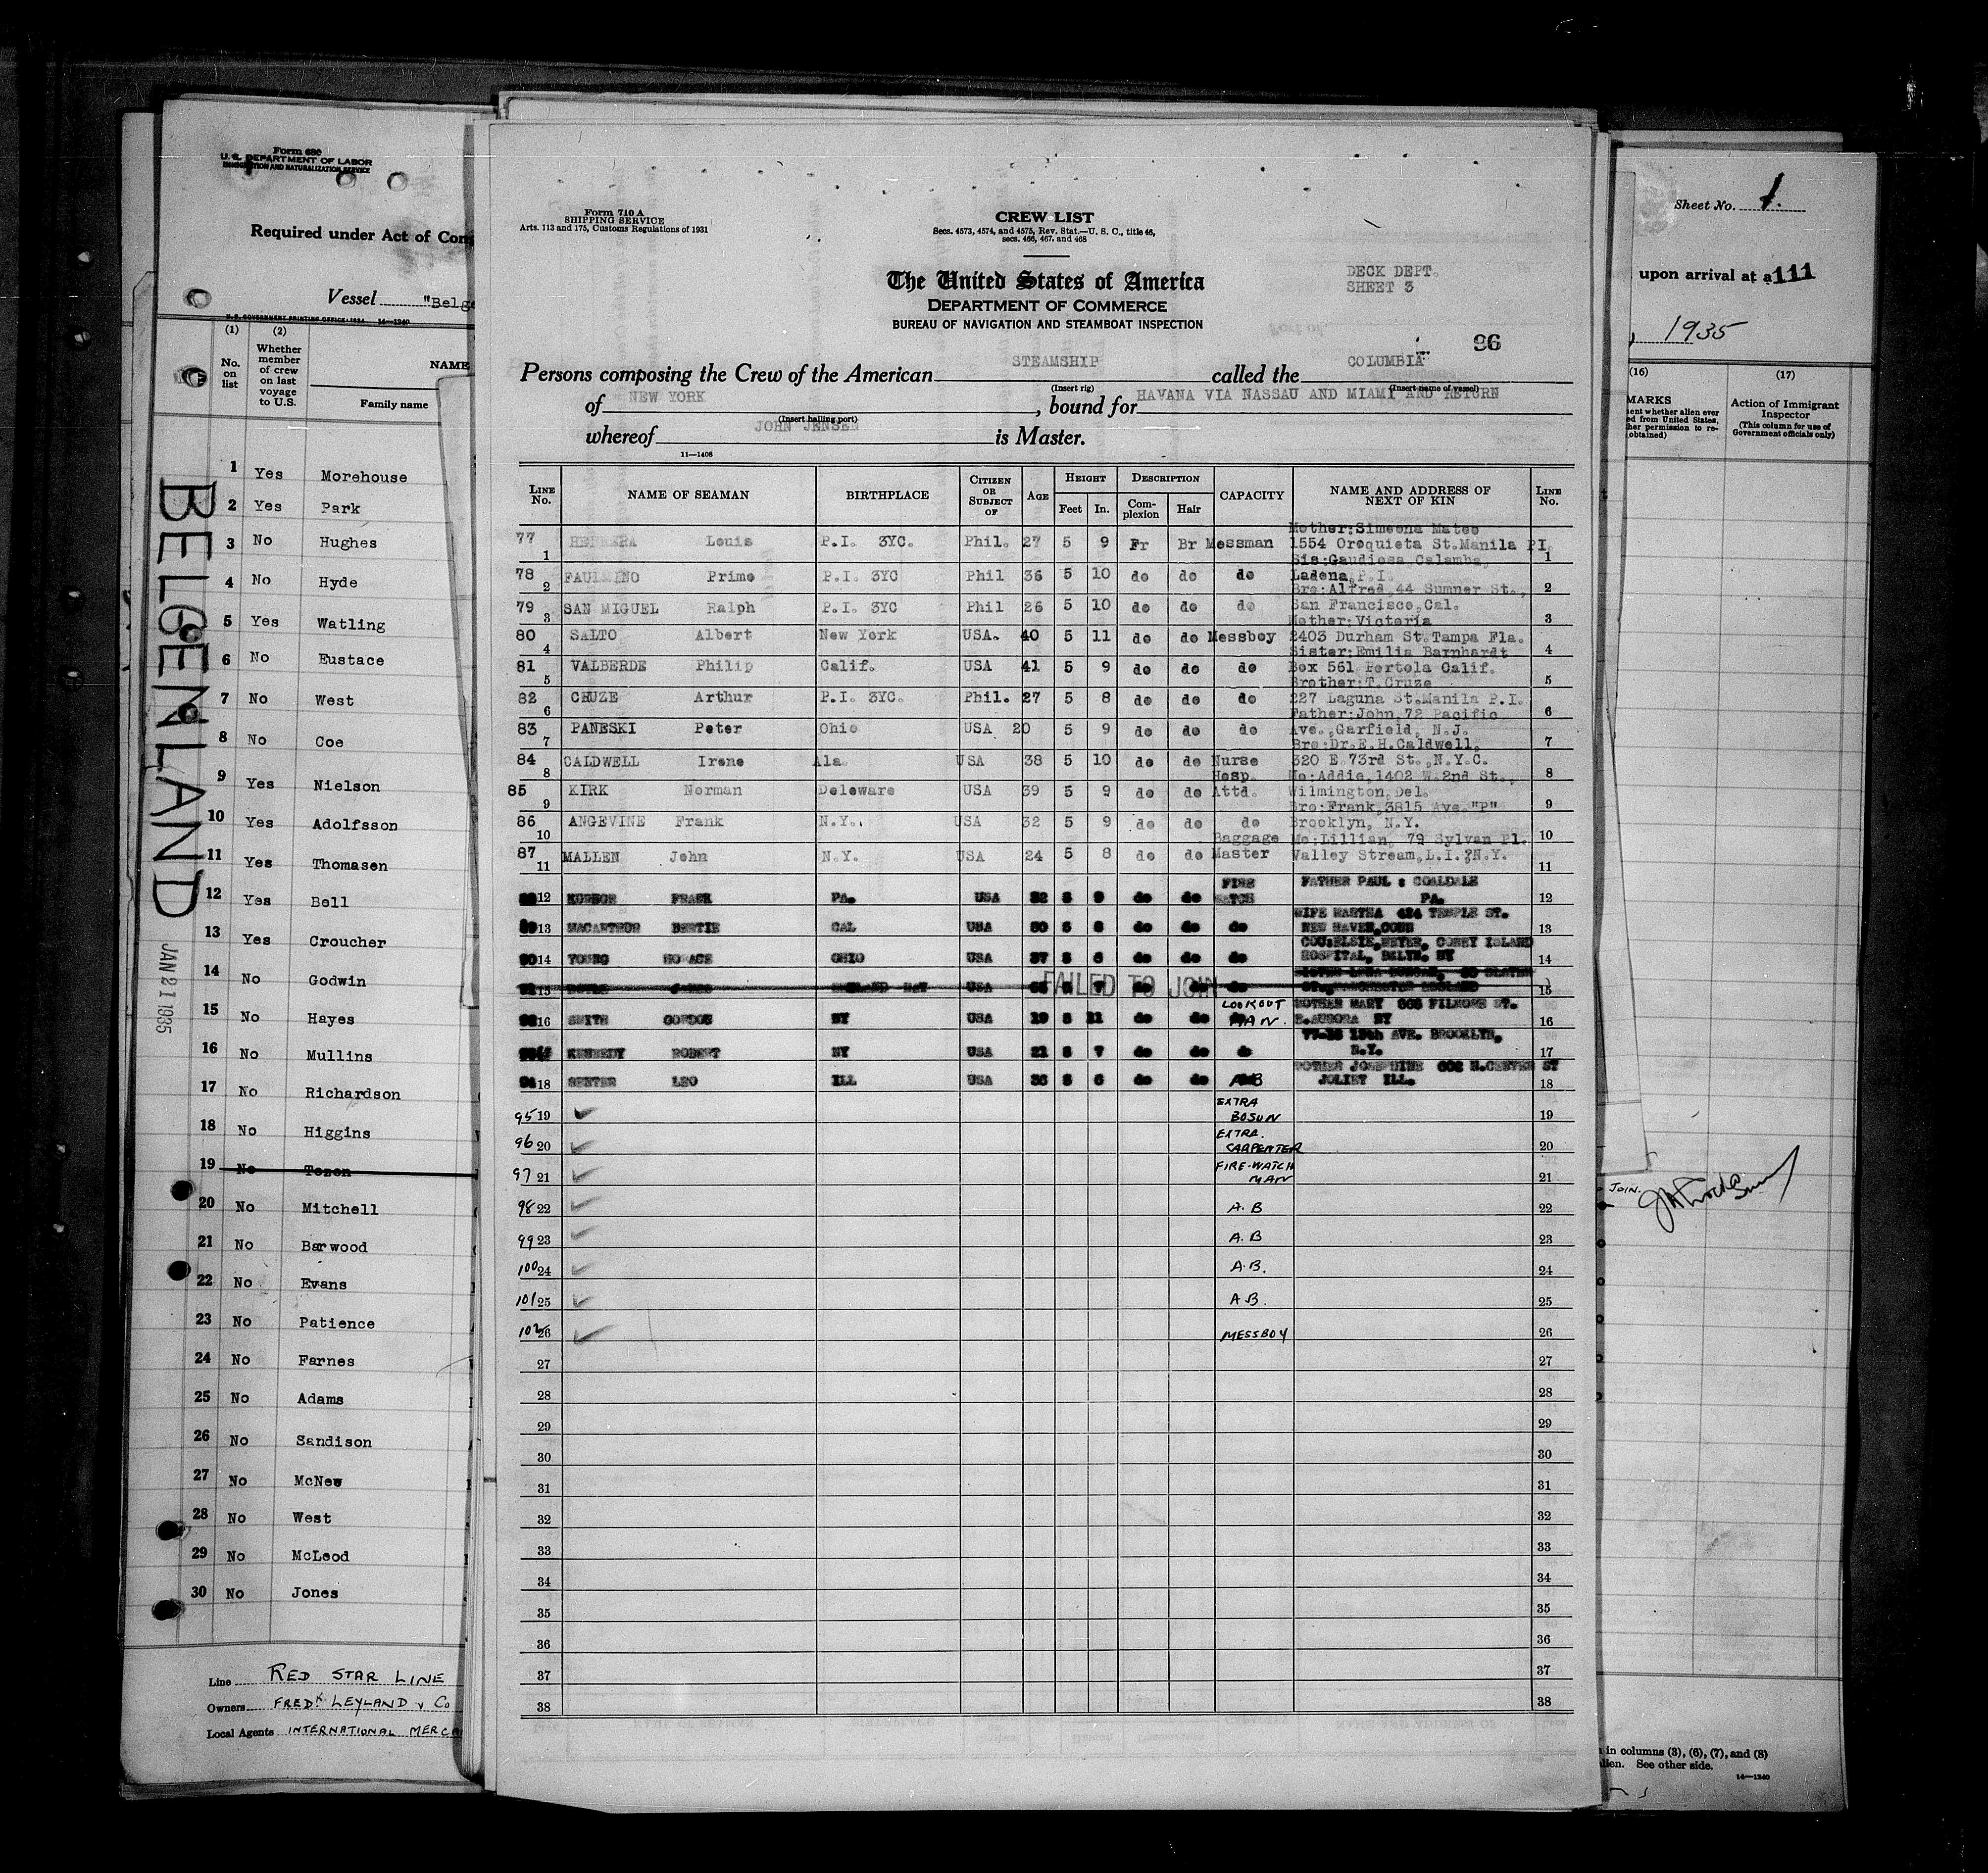 Form 680
U. S. DEPARTMENT OF LABOR
IMMIGRATION AND NATURALIZATION SERVICE
Required under Act of Cong
Vessel "Belge
U. S. GOVERNMENT PRINTING OFFICE: 1934 14—1240
(1) (2)
No. on list
Whether member of crew on last voyage to U.S.
NAME
Family name
1 Yes Morehouse
2 Yes Park
3 No Hughes
4 No Hyde
5 Yes Watling
6 No Eustace
7 No West
8 No Coe
9 Yes Nielson
10 Yes Adolfsson
11 Yes Thomasen
12 Yes Bell
13 Yes Croucher
14 No Godwin
15 No Hayes
16 No Mullins
17 No Richardson
18 No Higgins
19 No Tozon
20 No Mitchell
21 No Barwood
22 No Evans
23 No Patience
24 No Farnes
25 No Adams
26 No Sandison
27 No McNew
28 No West
29 No McLeod
30 No Jones
BELGENLAND
JAN 21 1935
Line RED STAR LINE
Owners FREDK LEYLAND & Co
Local Agents INTERNATIONAL MERCA
Form 710 A
SHIPPING SERVICE
Arts. 113 and 175, Customs Regulations of 1931
CREW LIST
Secs. 4573, 4574, and 4575, Rev. Stat.—U. S. C., title 46,
secs. 466, 467, and 468
The United States of America
DEPARTMENT OF COMMERCE
BUREAU OF NAVIGATION AND STEAMBOAT INSPECTION
DECK DEPT.
SHEET 3
96
Persons composing the Crew of the American STEAMSHIP called the COLUMBIA
(Insert rig) (Insert name of vessel)
of NEW YORK, bound for HAVANA VIA NASSAU AND MIAMI AND RETURN
(Insert hailing port)
whereof JOHN JENSEN is Master.
11—1408
LINE No. NAME OF SEAMAN BIRTHPLACE CITIZEN OR SUBJECT OF AGE HEIGHT Feet In. DESCRIPTION Complexion Hair CAPACITY NAME AND ADDRESS OF NEXT OF KIN LINE No.
Mother:Simeona Mateo
77 1 HERRERA Louis P.I. 3YC. Phil. 27 5 9 Fr Br Messman 1554 Oroquieta St.Manila PI. 1
Sis:Gaudiosa Calamba,
78 2 FAULMINO Primo P.I. 3YC Phil 36 5 10 do do do Ladena, P.I. 2
Bro:Alfred,44 Sumner St.,
79 3 SAN MIGUEL Ralph P.I. 3YC Phil 26 5 10 do do do San Francisco,Cal. 3
Mother:Victoria
80 4 SALTO Albert New York USA. 40 5 11 do do Messboy 2403 Durham St.Tampa Fla. 4
Sister:Emilia Barnhardt
81 5 VALBERDE Philip Calif. USA 41 5 9 do do do Box 561 Portola Calif. 5
Brother:T.Cruze
82 6 CRUZE Arthur P.I. 3YC. Phil. 27 5 8 do do do 227 Laguna St.Manila P.I. 6
Father:John,72 Pacific
83 7 PANESKI Peter Ohio USA 20 5 9 do do do Ave.,Garfield, N.J. 7
Bro:Dr.E.H.Caldwell,
84 8 CALDWELL Irene Ala. USA 38 5 10 do do Nurse 320 E.73rd St.,N.Y.C. 8
Hosp. Mo:Addie,1402 W.2nd St.,
85 9 KIRK Norman Deleware USA 39 5 9 do do Attd. Wilmington,Del. 9
Bro:Frank,3815 Ave."P"
86 10 ANGEVINE Frank N.Y. USA 32 5 9 do do do Brooklyn, N.Y. 10
Baggage Mo:Lillian, 79 Sylvan Pl.
87 11 MALLEN John N.Y. USA 24 5 8 do do Master Valley Stream,L.I.,N.Y. 11
FIRE FATHER PAUL : COALDALE
12 FRANK PA. USA 32 5 9 do do WATCH PA. 12
WIFE MARTHA 424 TEMPLE ST.
89 13 MACARTHUR BERTIE CAL USA 50 5 8 do do do NEW HAVEN,CONN 13
COU:ELSIE,MEYER, CONEY ISLAND
90 14 YOUNG HORACE OHIO USA 37 5 6 do do do HOSPITAL, BKLYN. NY 14
15 USA 5 7 do do do 15
FAILED TO JOIN
LOOKOUT MOTHER MARY FILMORE ST.
92 16 SMITH GORDON NY USA 19 5 11 do do MAN. E.AURORA NY 16
13th AVE. BROOKLYN,
KENNEDY ROBERT NY USA 21 5 7 do do do N.Y. 17
MOTHER JOSEPHINE 602 N.CENTER ST
94 18 LEO ILL USA 36 5 6 do do AB JOLIET ILL. 18
95 19 ✓ EXTRA BOSUN 19
96 20 ✓ EXTRA. CARPENTER 20
97 21 ✓ FIRE-WATCH MAN 21
98 22 ✓ A.B 22
99 23 ✓ A.B 23
100 24 ✓ A.B. 24
101 25 ✓ A.B. 25
102 26 ✓ MESSBOY 26
27 27
28 28
29 29
30 30
31 31
32 32
33 33
34 34
35 35
36 36
37 37
38 38
Sheet No. 1.
upon arrival at a 111
, 1935
(16) (17)
MARKS
ent whether alien ever
ed from United States,
her permission to re-
obtained)
Action of Immigrant
Inspector
(This column for use of
Government officials only)
JOIN.
in columns (3), (6), (7), and (8)
lien. See other side.
14—1240